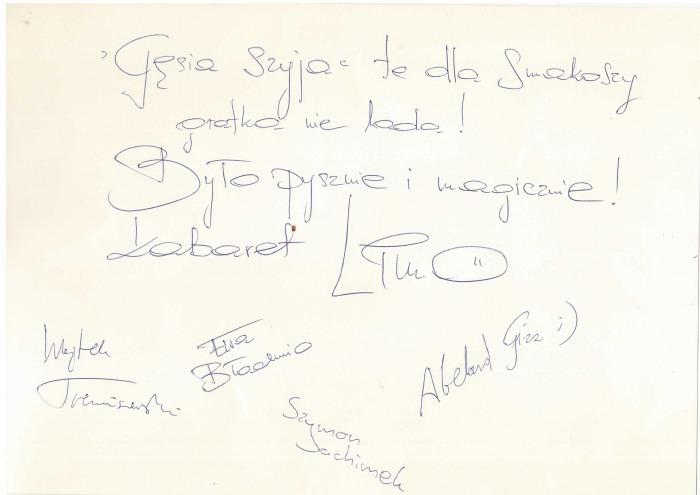 "Gęsia szyja" te dla smakoszy
gratka nie lada!
Było pysznie i magicznie!
Kabaret Limo
Wojtek
Tremiszewski
Ewa
Błachnio
Szymon
Jachimek
Abelard Giza ;)